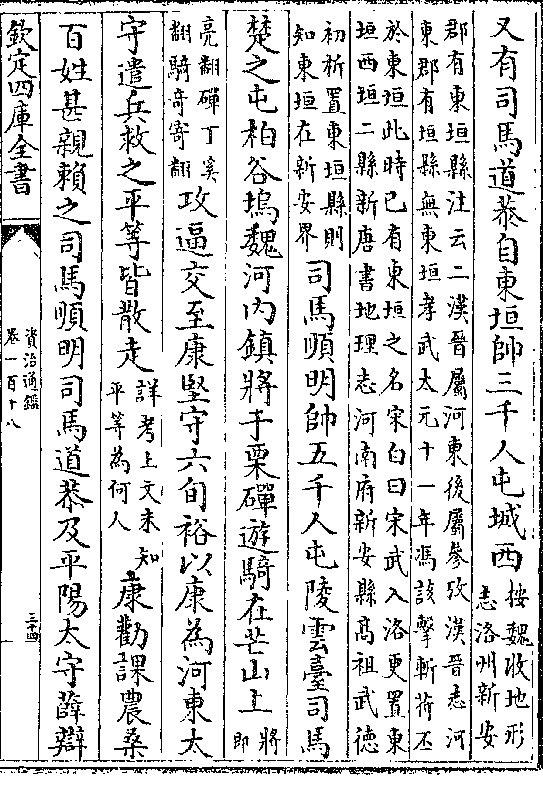 又有司馬道恭自東垣帥三千人屯城西按魏收地形
志洛州新安
郡有東垣縣注云二漢晉屬河東後屬參攷漢晉志河
東郡有垣縣無東垣孝武太元十一年馮該擊斬苻丕
於東垣此時已有東垣之名宋白曰宋武入洛更置東
垣西垣二縣新唐書地理志河南府新安縣高祖武德
初析置東垣縣則
知東垣在新安界
司馬順明帥五千人屯陵雲臺司馬
楚之屯柏谷塢魏河内鎮將于栗磾遊騎在芒山上
將
即
亮翻磾丁奚
翻騎奇寄翻
攻逼交至康堅守六旬裕以康為河東太
守遣兵救之平等皆散走
詳考上文未知
平等為何人
康勸課農桑
百姓甚親賴之司馬順明司馬道恭及平陽太守薛辯
欽定四庫全書
資治通鑑
卷一百十八
三十四